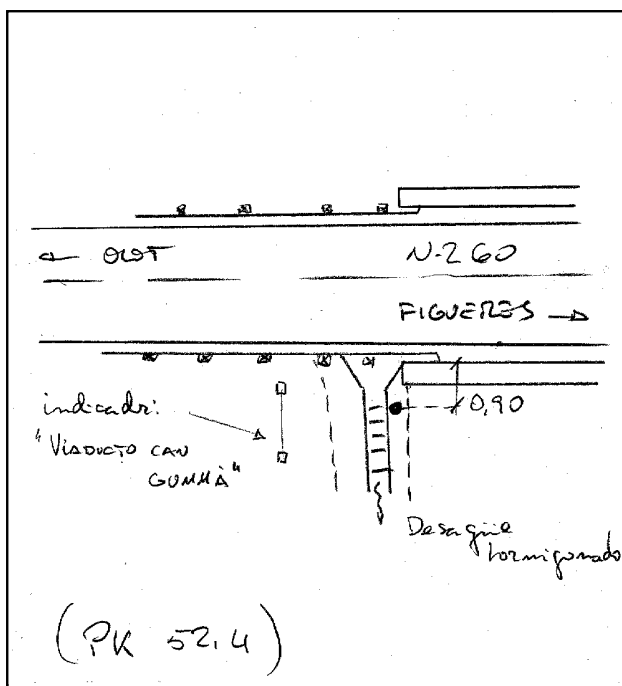 ← OLOT N-260
FIGUERES →
0,90
indicador:
"VIADUCTO CAN
GUMMÀ"
Desagüe
hormigonado
(PK 52.4)